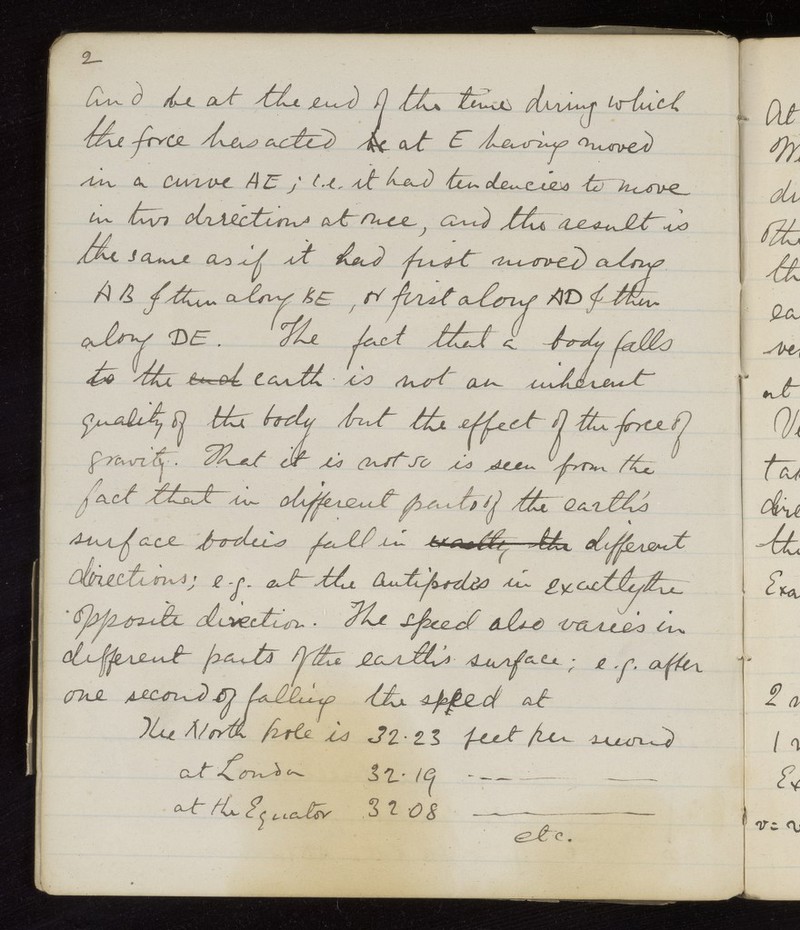 2
and be at the end of the time during which
the force has acted be at E having moved
in a curve AE; i.e. it had tendencies to move
in two directions at once, and the result is
the same as if it had first moved along
AB & then along BE, or first along AD & then
along DE. The fact that a body falls
to the end earth is not an inherent
quality of the body but the effect of the force of
gravity. That it is not so is seen from the
fact that in different parts of the earth's
surface bodies fall in exactly the different
directions; e.g. at the antipodes in exactly the
opposite direction. The speed also varies in
different parts of the earth's surface; e.g. after
one second of falling the speed at
The North pole is 32.23 feet per second
at London 32.19 — — —
at the Equator 32.08 —
etc.
At
di
oth
th
ea
ve
at
Ve
tak
dire
the
Exa
2
1
Ex
v=